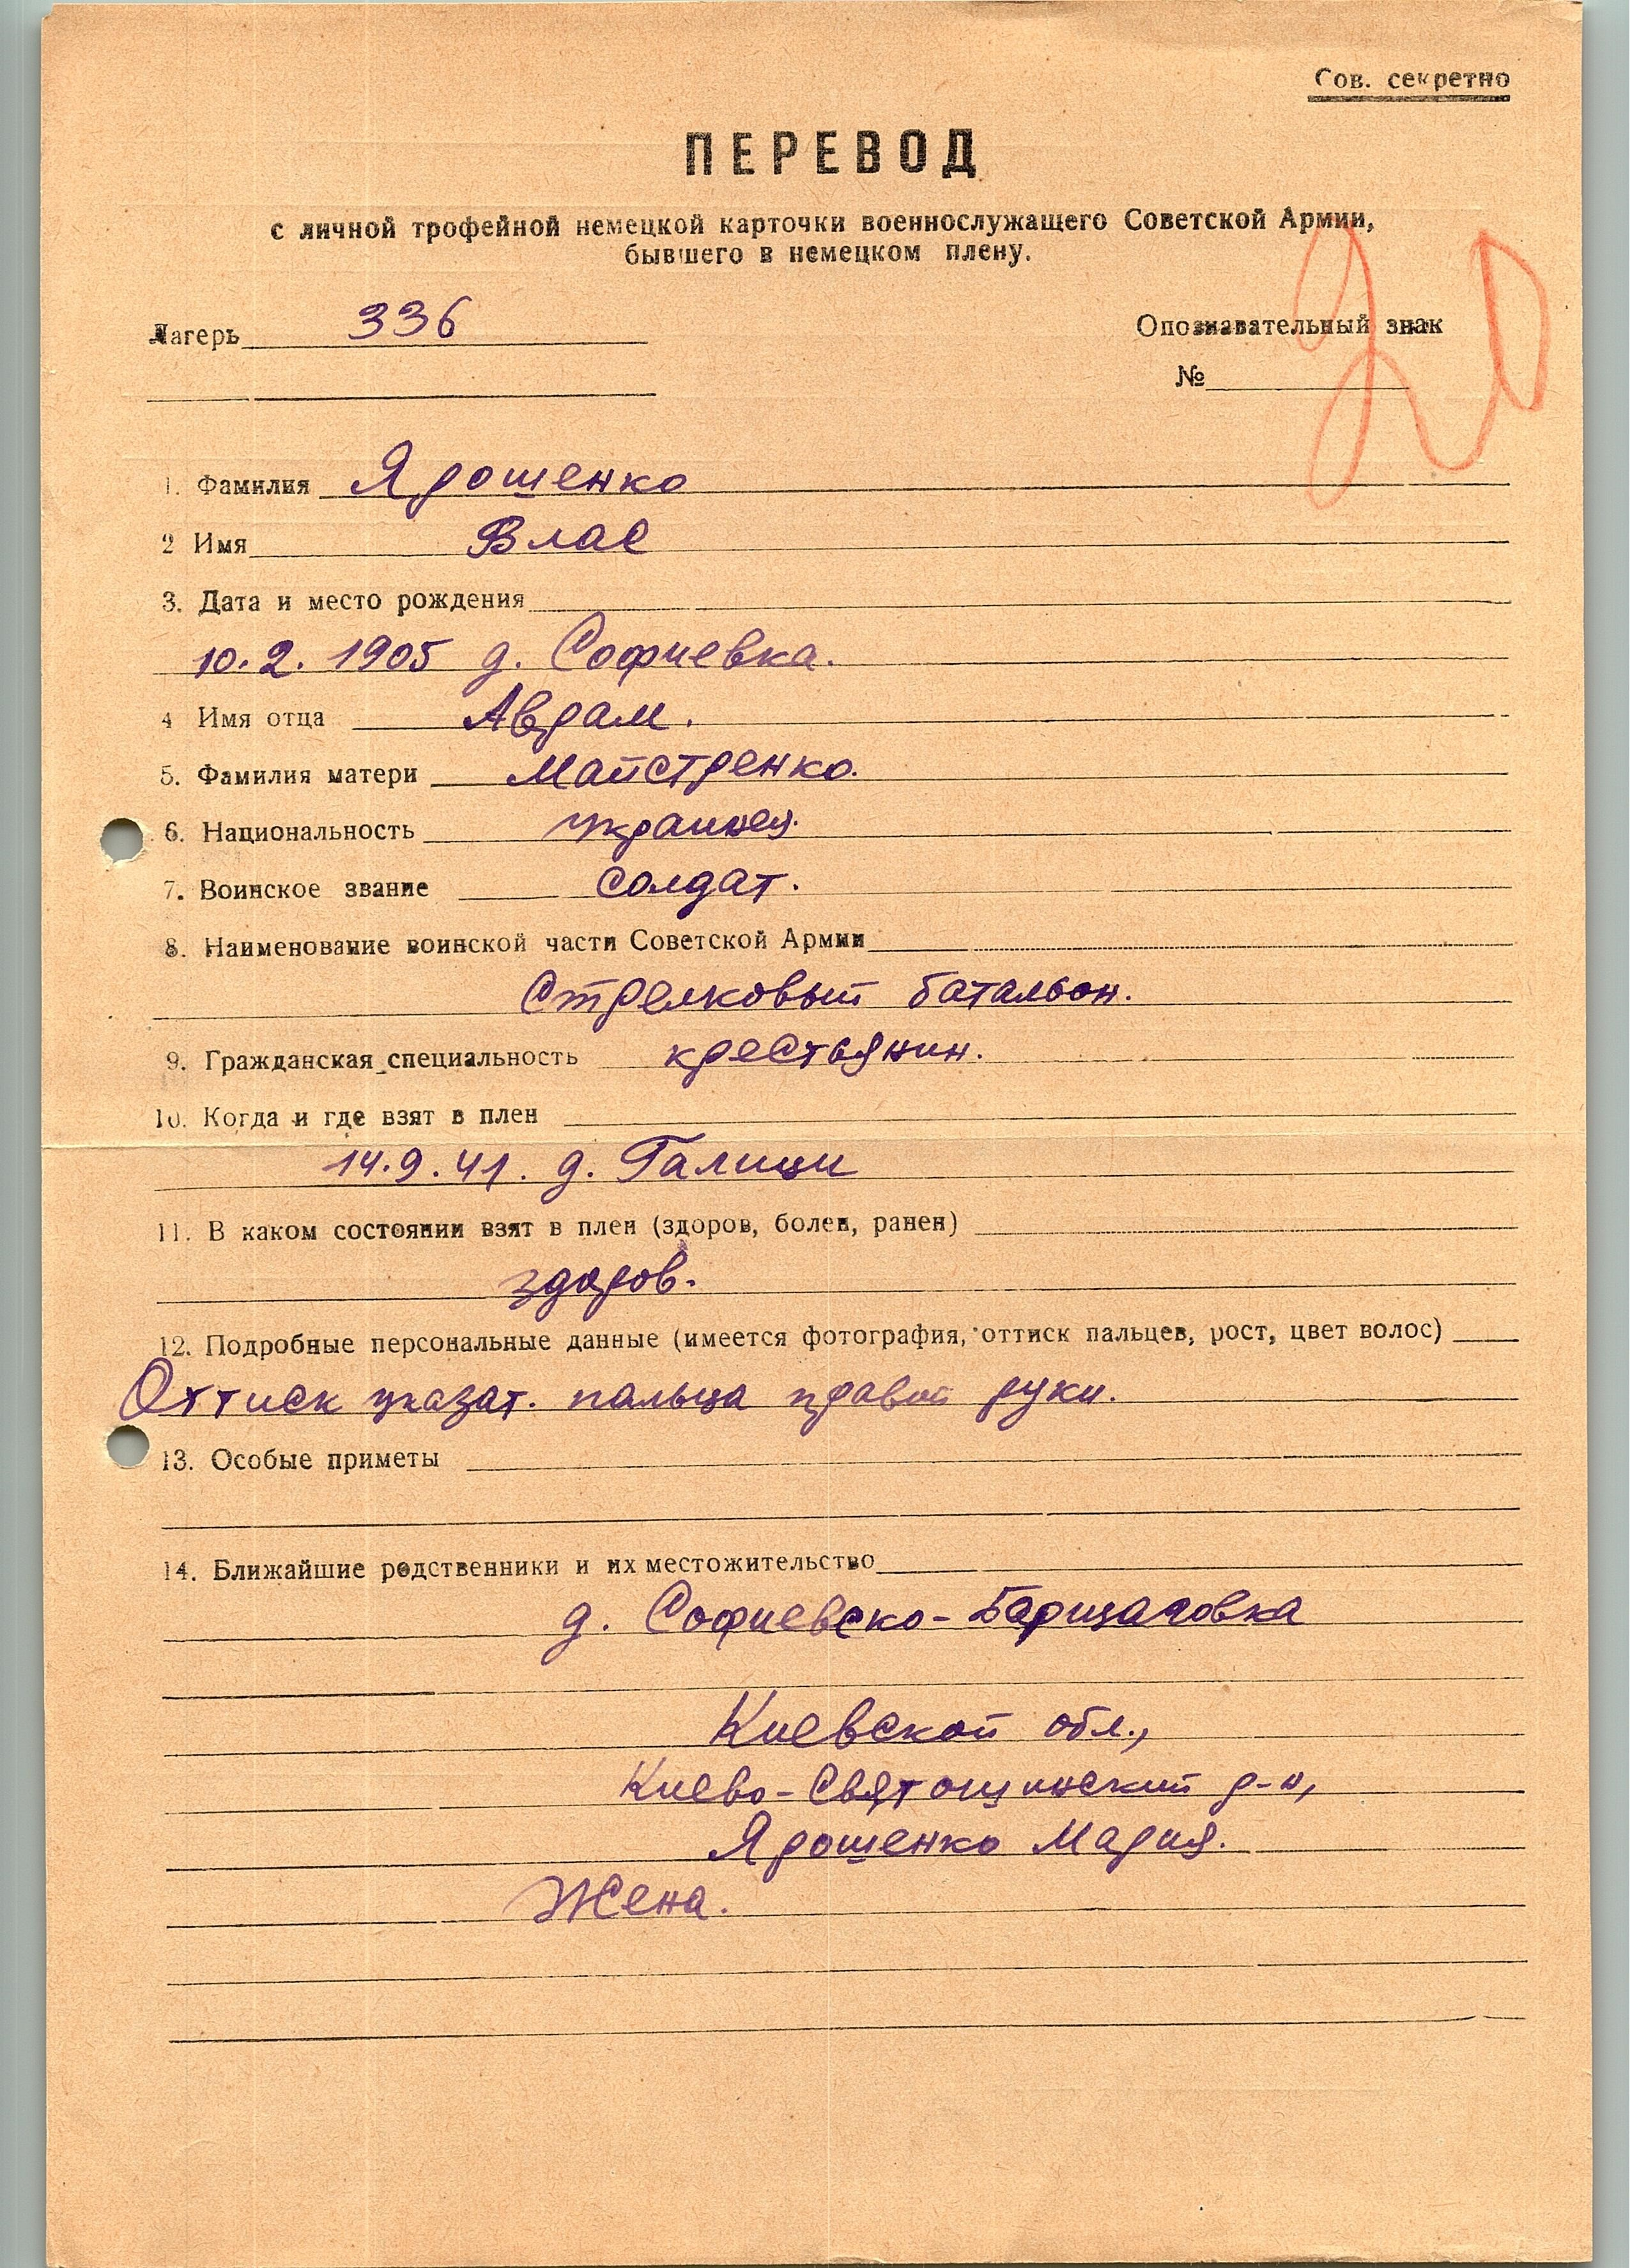 Сов. секретно
ПЕРЕВОД
с личной трофейной немецкой карточки военнослужащего Советской Армии,
бывшего в немецком плену.
Лагерь 336
Опознавательный знак
№
1. Фамилия Ярошенко
2 Имя Влас
3. Дата и место рождения
10.2.1905 д. Софиевка.
4 Имя отца Аврам.
5. Фамилия матери Майстренко.
6. Национальность украинец.
7. Воинское звание солдат.
8. Наименование воинской части Советской Армии
Стрелковый батальон.
9. Гражданская специальность крестьянин.
10. Когда и где взят в плен
14.9.41. д. Галици
11. В каком состоянии взят в плен (здоров, болен, ранен)
здоров.
12. Подробные персональные данные (имеется фотография, оттиск пальцев, рост, цвет волос)
Оттиск указат. пальца правой руки.
13. Особые приметы
14. Ближайшие родственники и их местожительство
д. Софиевско-Барщаговка
Киевской обл.,
Киево-Святошинский р-н,
Ярошенко Мария.
Жена.